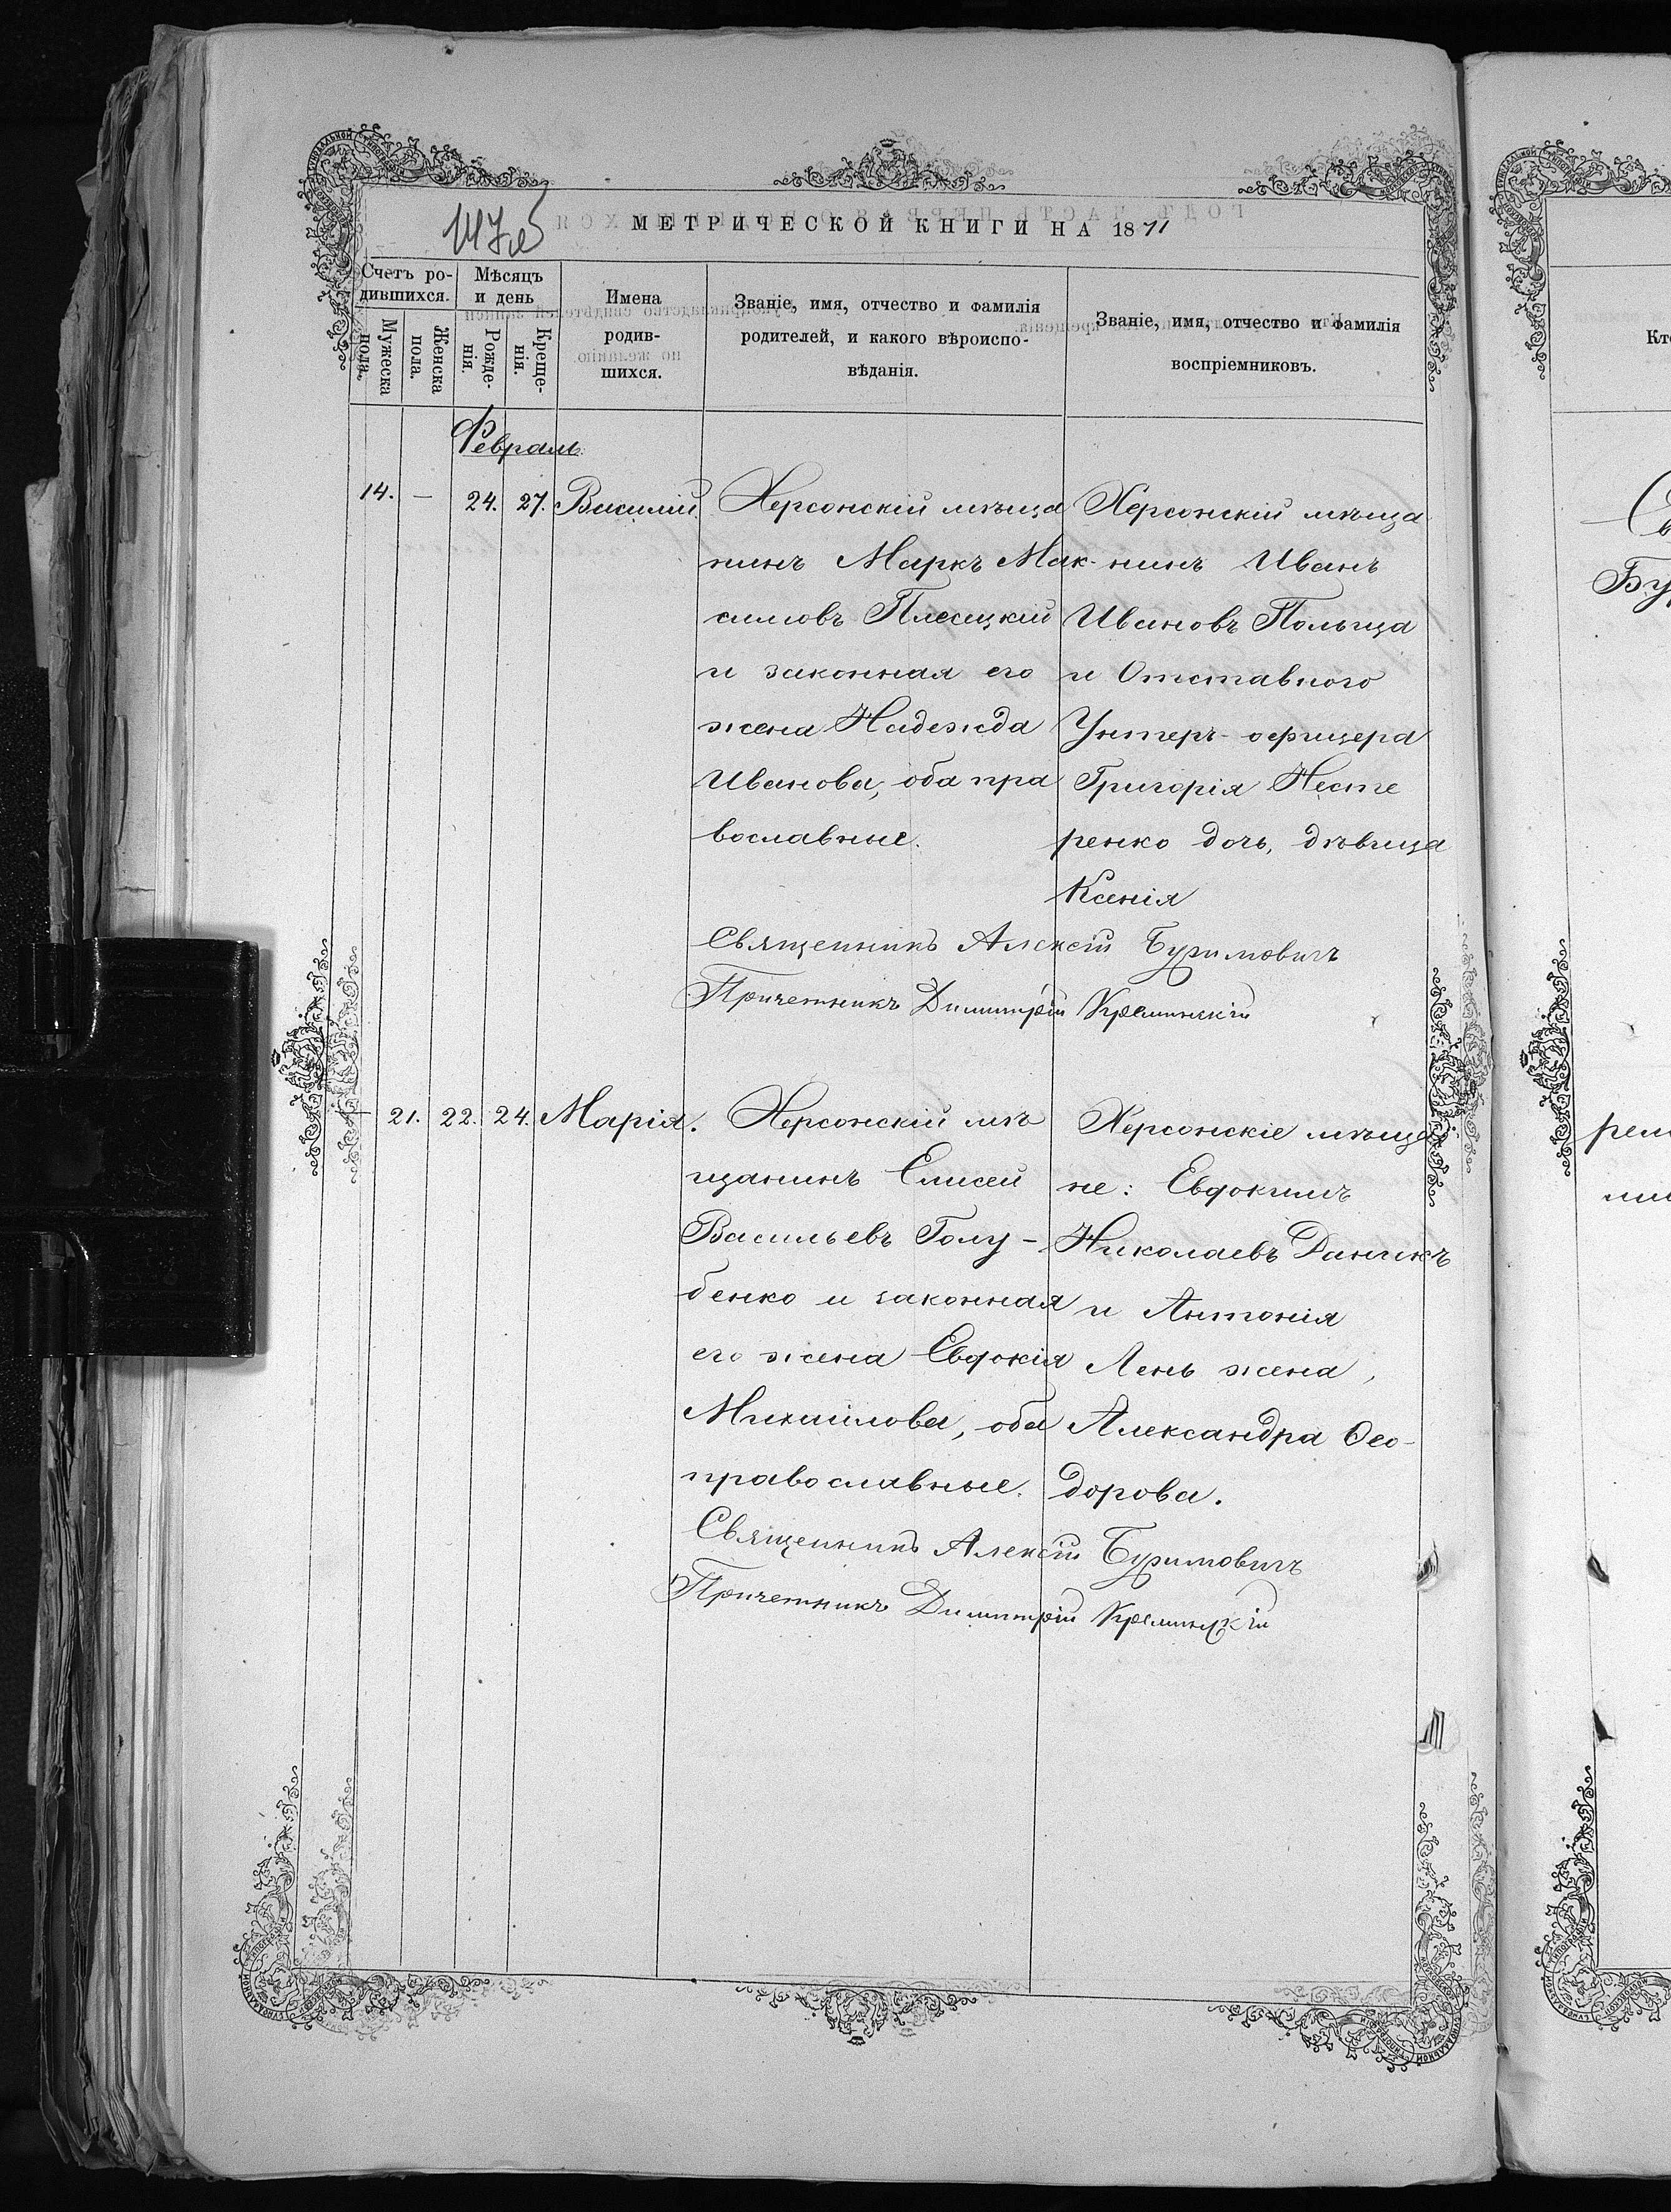 МЕТРИЧЕСКОЙ КНИГИ НА 1871
Счетъ ро-
дившихся.
Мѣсяцъ
и день
Мужеска
пола.
Женска
пола.
Рожде-
нія.
Креще-
нія.
Имена
родив-
шихся.
Званіе, имя, отчество и фамилія
родителей, и какого вѣроиспо-
вѣданія.
Званіе, имя, отчество и фамилія
воспріемниковъ.
Февраль
14. — 24. 27. Василій.
Херсонскій мѣща
нинъ Маркъ Мак-
симовъ Плесецкій
и законная его
жена Надежда
Иванова, оба пра
вославные.
Херсонскій мѣща
нинъ Иванъ
Ивановъ Польща
и Отставного
Унтеръ-офицера
Григорія Несте
ренко дочь, дѣвица
Ксенія
Священникъ Алексій Буримовичъ
Причетникъ Димитрій Креминскій
— 21. 22. 24. Марія.
Херсонскій мѣ
щанинъ Елисей
Васильевъ Голу-
бенко и законная
его жена Евдокія
Михайлова, оба
православные.
Херсонскіе мѣща
не: Евдокимъ
Николаевъ Данчикъ
и Антонія
Лень жена,
Александра Ѳео-
дорова.
Священникъ Алексій Буримовичъ
Причетникъ Димитрій Креминскій
Кт
Бу